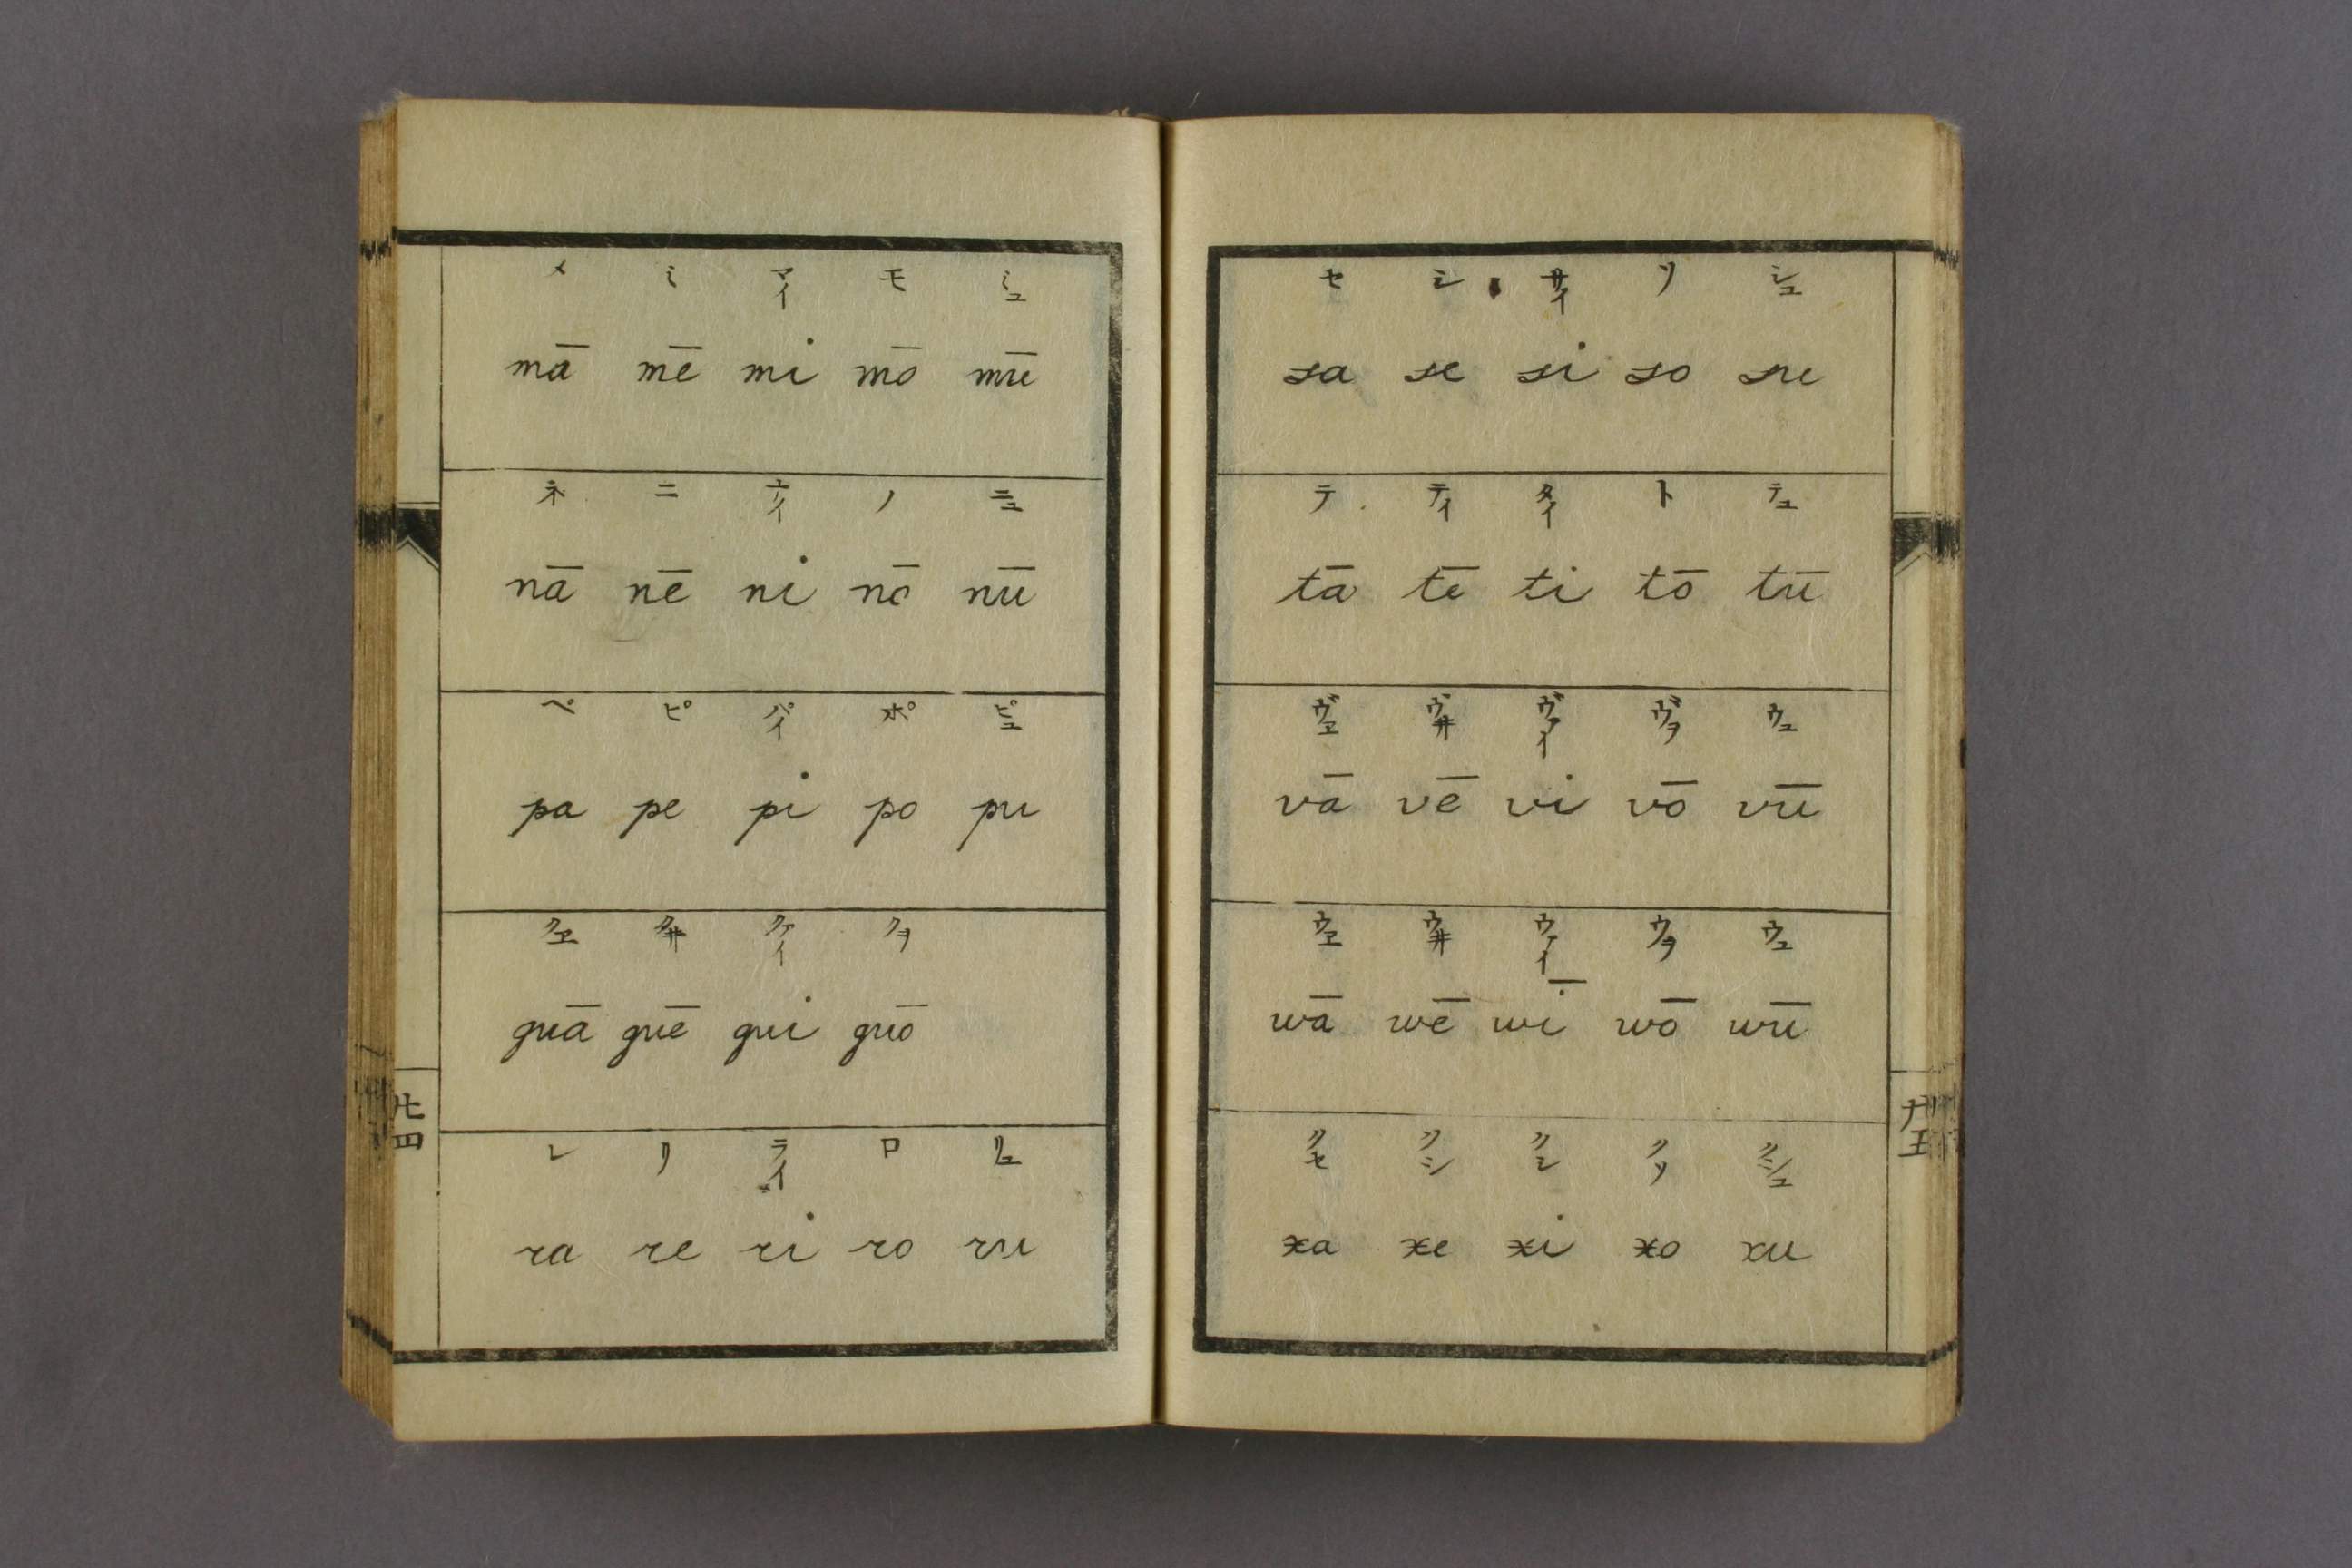 メ ミ マイ モ ミュ
mā mē mi mō mū
ネ ニ ナイ ノ ニュ
nā nē ni nō nū
ペ ピ パイ ポ ピュ
pa pe pi po pu
クヱ クヰ クァイ クヲ
quā quē qui quō
レ リ ライ ロ リュ
ra re ri ro ru
廿四
セ シ サイ ソ シュ
sa se si so su
テ ティ タイ ト テュ
tā tē ti tō tū
ヴヱ ヴヰ ヴァイ ヴヲ ウュ
vā vē vi vō vū
ウヱ ウヰ ウァイ ウヲ ウュ
wā wē wī wō wū
クセ クシ クシ クソ クシュ
xa xe xi xo xu
廿五